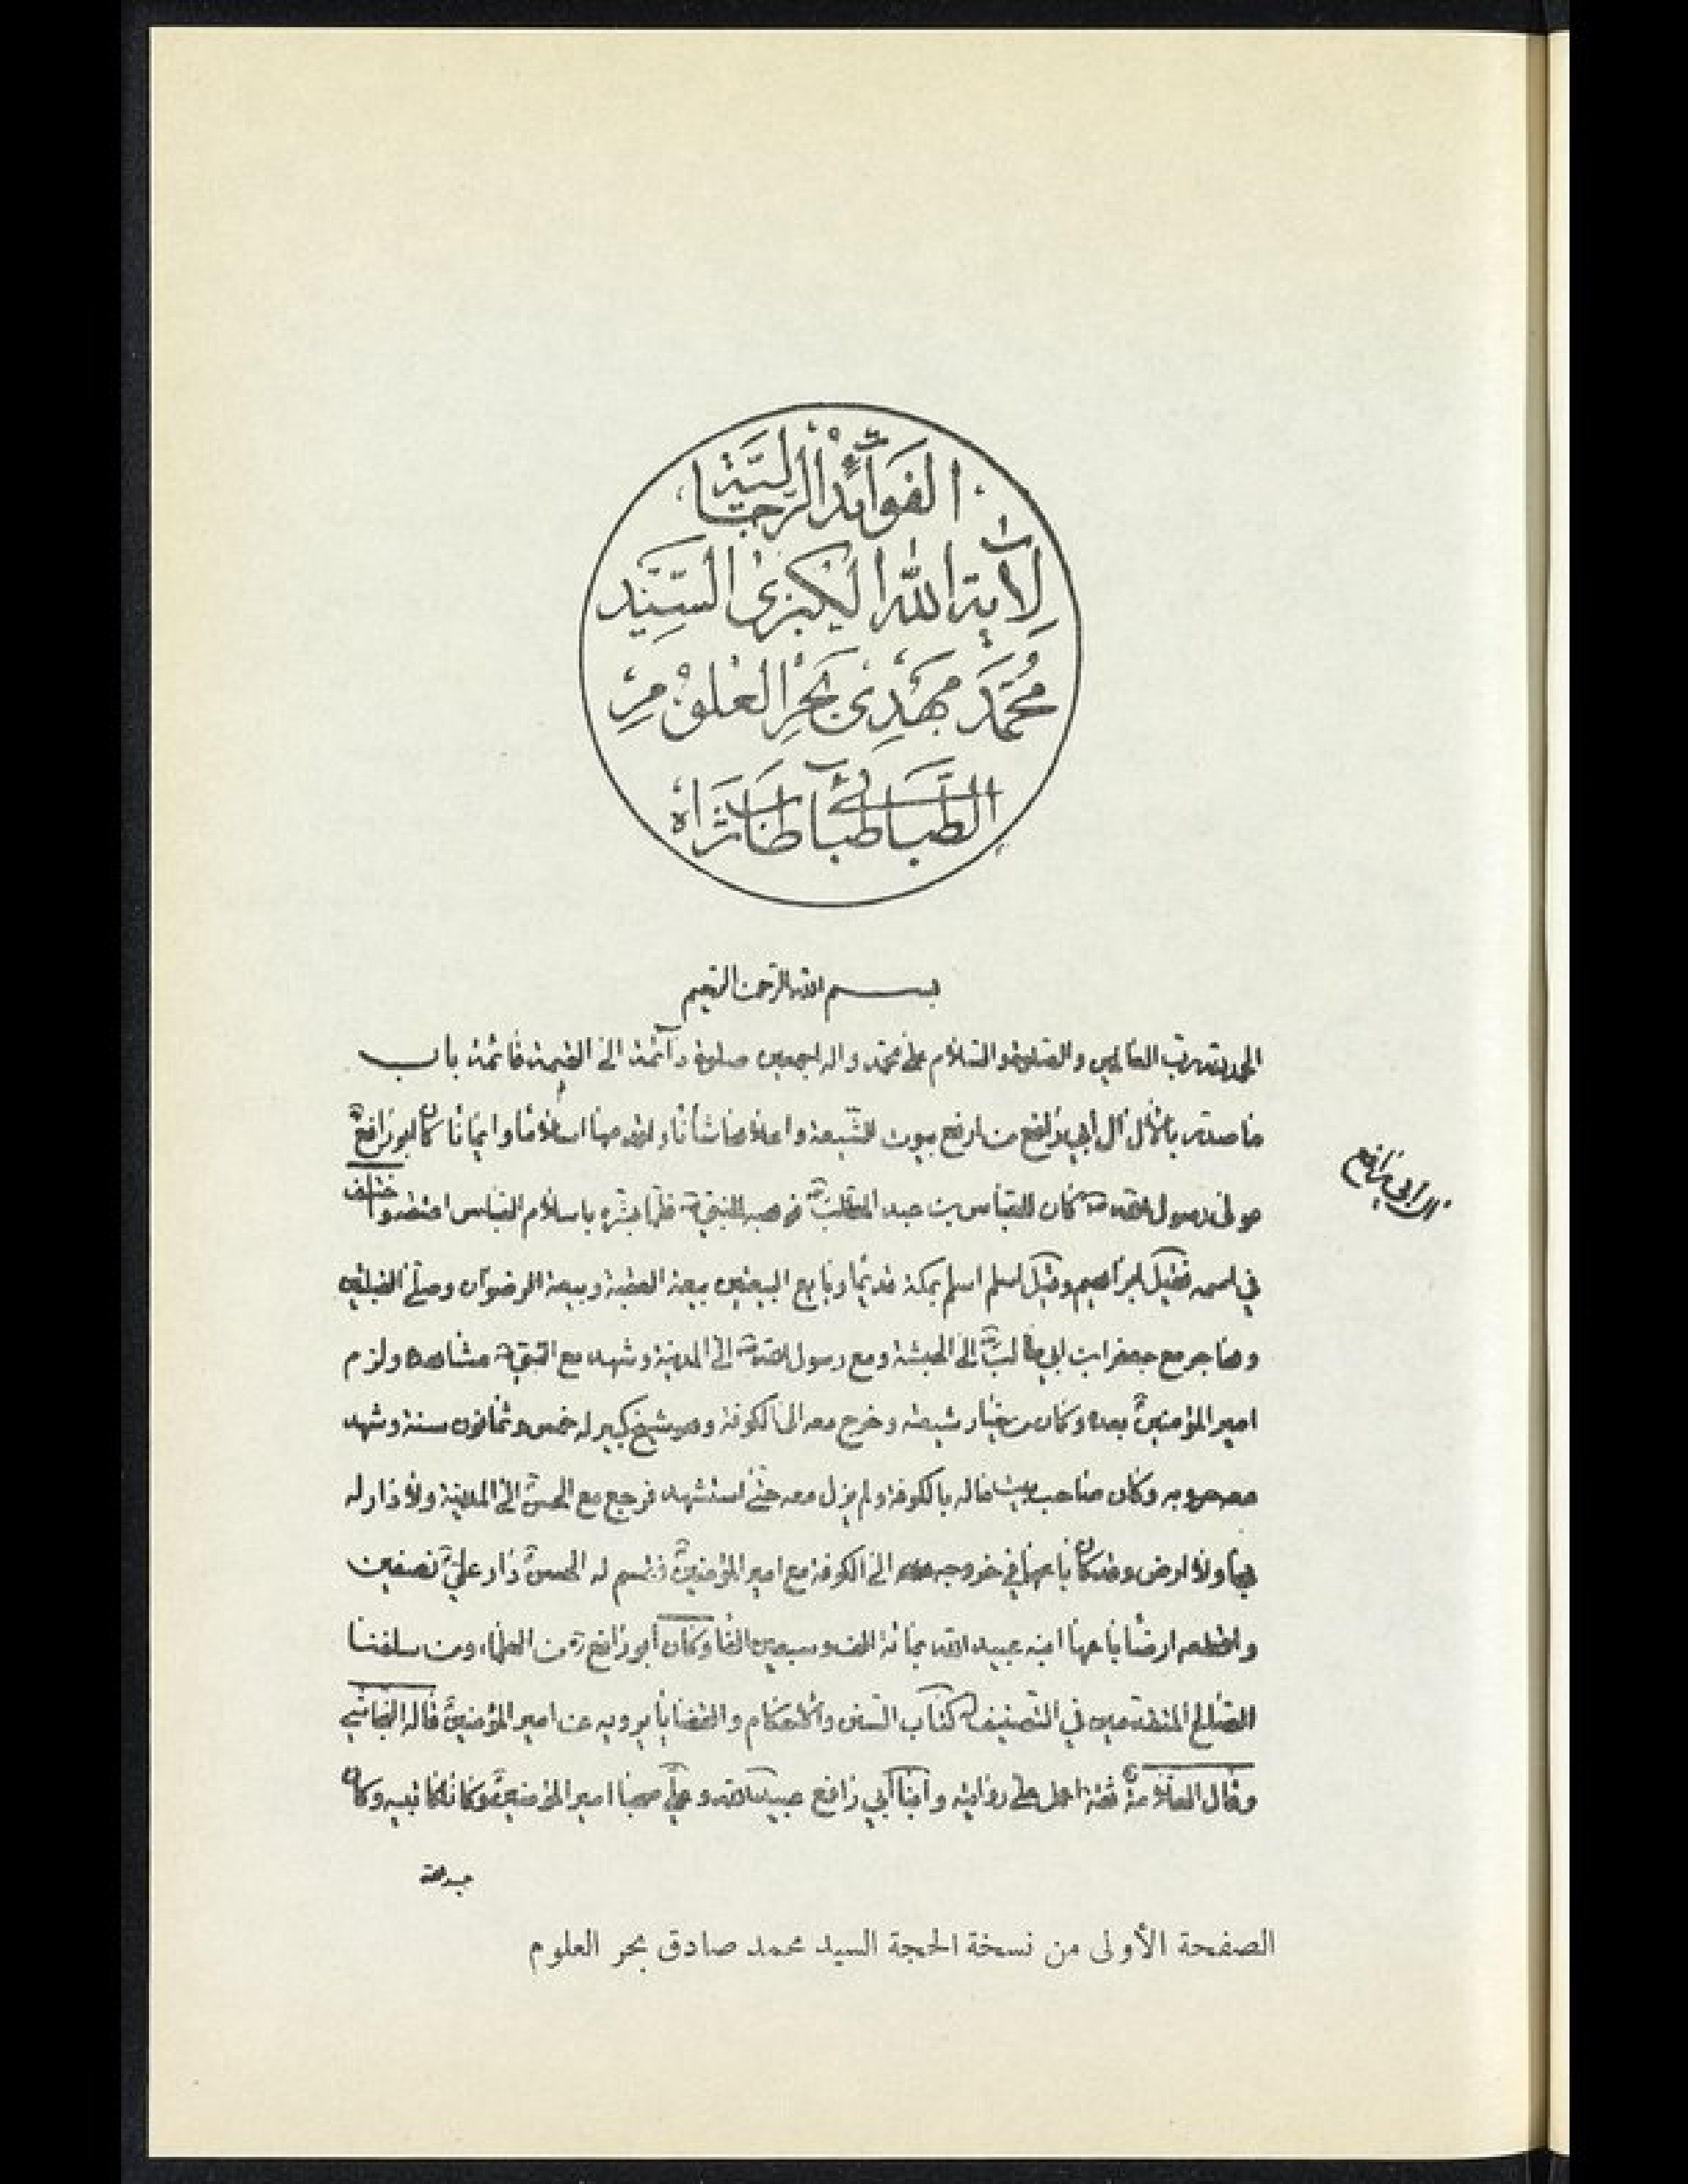 الفَوَائِدُ الرِّجَالِيَّة
لِآيَةِ اللهِ الكُبْرى السَّيِّد
مُحَمَّد مَهْدِي بَحْرِ العُلُوْم
الطَّبَاطَبَائي طَابَ ثَرَاهُ
بسم الله الرحمن الرحيم
الحمد لله رب العالمين والصلوة والسلام على محمد واله اجمعين صلوة دآئمة الى القيمة قائمة باب
ما صدر بالآل آل أبي رافع من ارفع بيوت الشيعة واعلاها شأنا واقدمها اسلاما وايمانا كان ابورافع
مولى رسول الله ص كان للعباس بن عبد المطلب فوهبه للنبي ص فلما بشره باسلام العباس اعتقه واختلف
في اسمه فقيل ابراهيم وقيل اسلم اسلم بمكة قديما وبايع البيعتين بيعة العقبة وبيعة الرضوان وصلى القبلتين
وهاجر مع جعفر ابن ابي طالب الى الحبشة ومع رسول الله ص الى المدينة وشهد مع النبي ص مشاهده ولزم
امير المؤمنين بعده وكان من خيار شيعته وخرج معه الى الكوفة وهو شيخ كبير له خمس وثمانون سنة وشهد
معه حروبه وكان صاحب بيت ماله بالكوفة ولم يزل معه حتى استشهد فرجع مع الحسن الى المدينة ولا دار له
بها ولا ارض وقد كان باعهما في خروجه الى الكوفة مع امير المؤمنين فقسم له الحسن دار علي نصفين
واقطعه ارضا باعها ابنه عبيد الله بمائة الف وسبعين الفا وكان أبو رافع ره من العلماء ومن سلفنا
الصالح المتقدمين في التصنيف له كتاب السنن والاحكام والقضايا يرويه عن امير المؤمنين قاله النجاشي
وقال العلامة ثقة اعمل على روايته وابنا أبي رافع عبيد الله وعلي صحبا امير المؤمنين وكانا كاتبيه وكان
عبيد الله
آل ابي رافع
الصفحة الأولى من نسخة الحجة السيد محمد صادق بحر العلوم